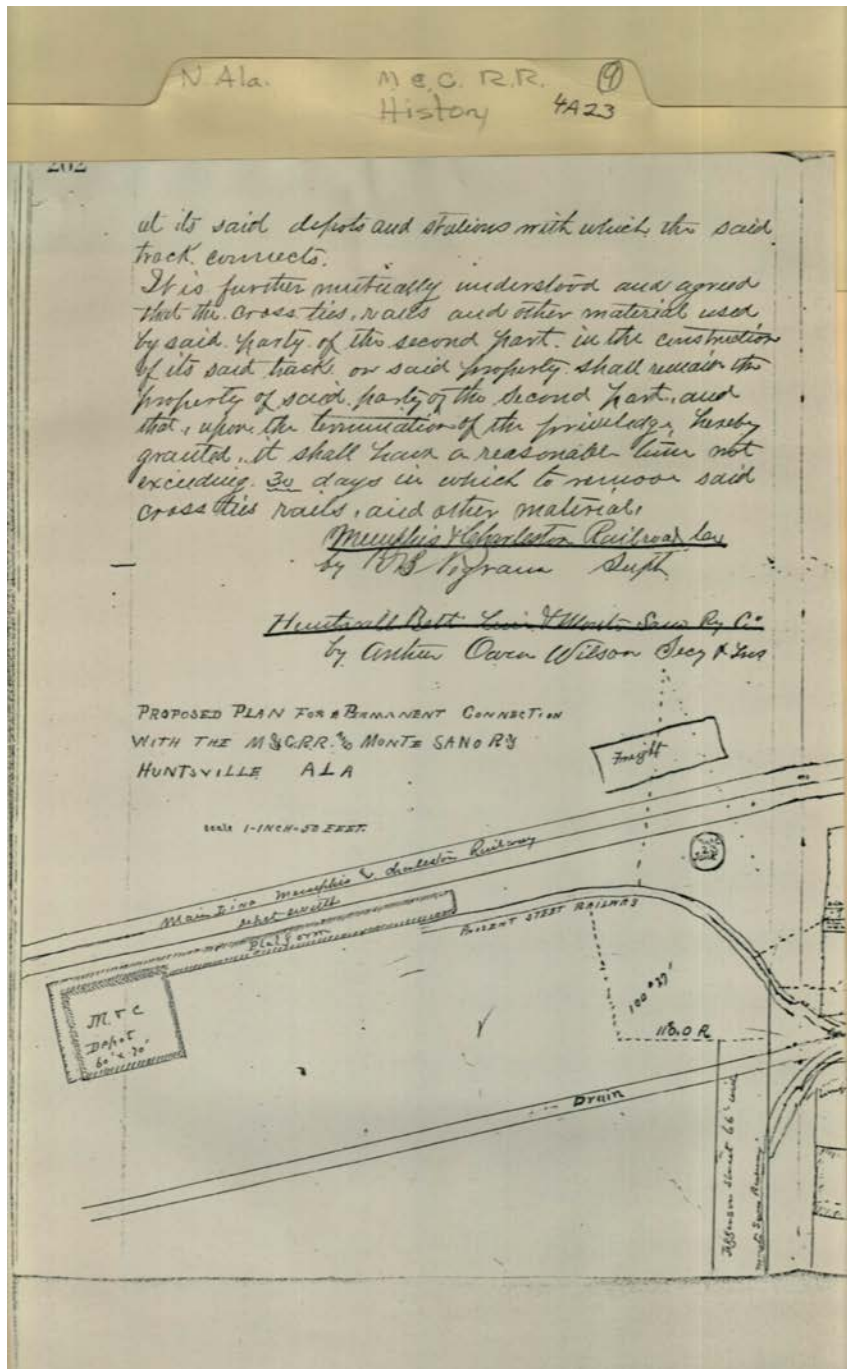 N. Ala.
M & C. R.R.
History
9
4A23
202
at its said depots and stations with which the said
track connects.
It is further mutually understood and agreed
that the cross ties, rails and other material used
by said party of the second part in the construction
of its said track on said property shall remain the
property of said party of the second part, and
that, upon the termination of the priviledge, hereby
granted, it shall have a reasonable time not
exceeding 30 days in which to remove said
cross ties rails, and other material.
Memphis & Charleston Railroad Co
by Supt
Huntsvill Belt Line & Monte Sano Ry Co
by Arthur Owen Wilson Secy & Tres
PROPOSED PLAN FOR A PERMANENT CONNECTION
WITH THE M&C.R.R. & MONTE SANO RY
HUNTSVILLE ALA
scale 1-INCH-50 FEET.
Freight
Main Line Memphis & Charleston Railway
depot switch
Platform
PRESENT STEET RAILWAY
M & C
Depot
60' x 70'
100° 37'
118.0 R
Drain
Jefferson Street 66' wide
Monte Sano Railway